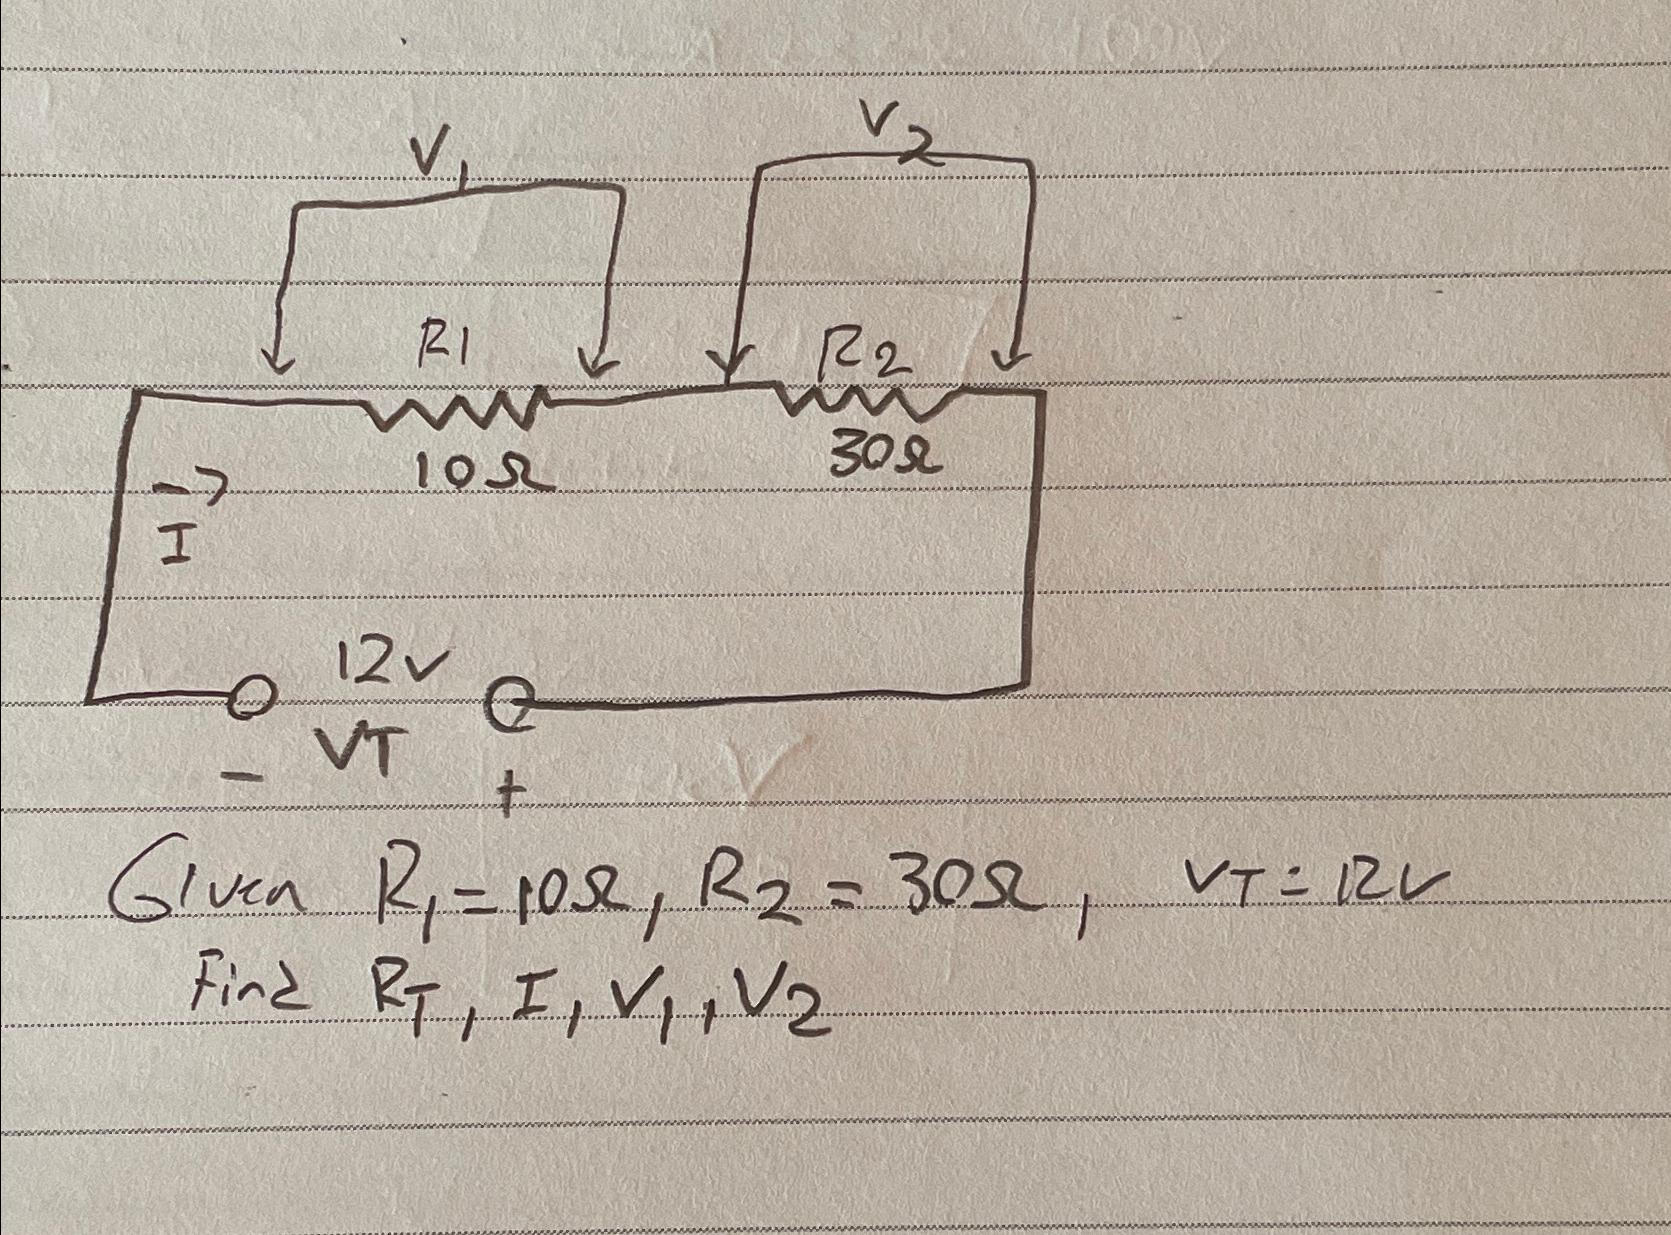 V1
V2
R1
R2
10Ω
30Ω
->
I
12V
VT
-
+
Given R1=10Ω, R2=30Ω, VT=12V
Find RT, I, V1, V2